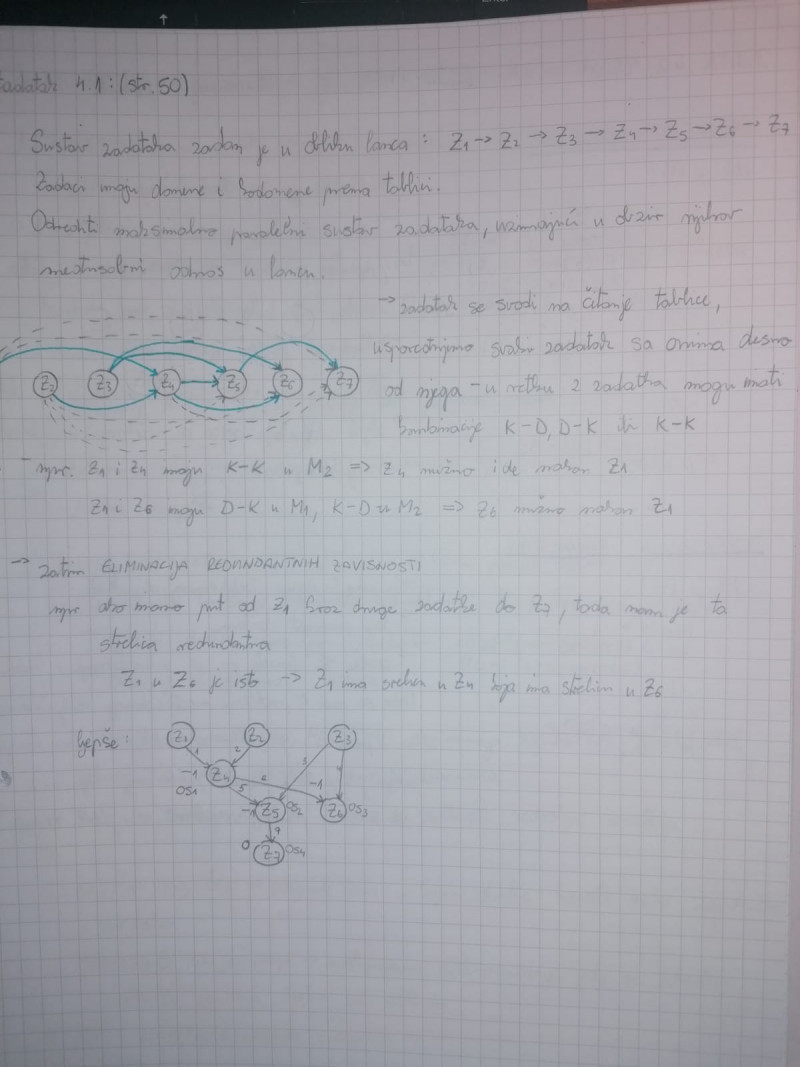 zadatak 4.1: (str. 50)
Sustav zadataka zadan je u obliku lanca: Z1 → Z2 → Z3 → Z4 → Z5 → Z6 → Z7
Zadaci imaju domene i kodomene prema tablici.
Odrediti maksimalno paralelni sustav zadataka, uzimajući u obzir njihov
međusobni odnos u lancu.
→ zadatak se svodi na čitanje tablice,
uspoređujemo svaki zadatak sa onima desno
od njega - u retku 2 zadatka mogu imati
kombinacije K-D, D-K ili K-K
Z2 Z3 Z4 Z5 Z6 Z7
- npr. Z1 i Z4 imaju K-K u M2 => Z4 nužno ide nakon Z1
Z1 i Z6 imaju D-K u M1, K-D u M2 => Z6 nužno nakon Z1
→ zatim ELIMINACIJA REDUNDANTNIH ZAVISNOSTI
npr ako imamo put od Z1 kroz druge zadatke do Z7, tada nam je ta
strelica redundantna
Z1 u Z6 je isto → Z1 ima strelicu u Z4 koja ima strelicu u Z6
ljepše:
Z1 Z2 Z3
1 2 3
-1 Z4 6 -1
OS1 5
-1 Z5 OS2 Z6 OS3
0 Z7 OS4